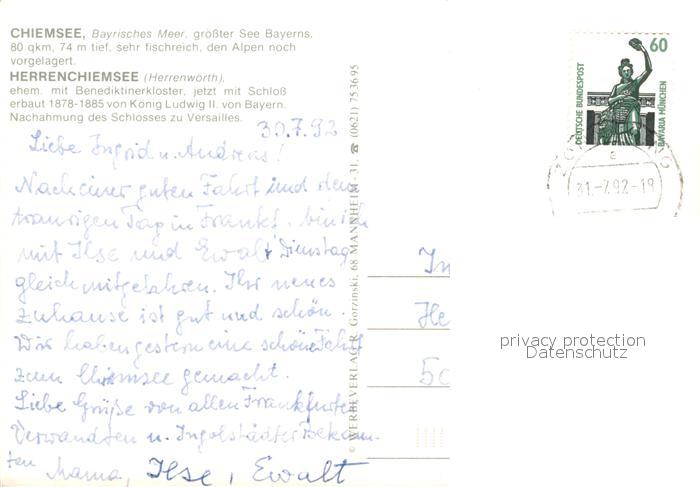 CHIEMSEE, Bayrisches Meer, größter See Bayerns,
80 qkm, 74 m tief, sehr fischreich, den Alpen noch
vorgelagert.
HERRENCHIEMSEE (Herrenwörth),
ehem. mit Benediktinerkloster, jetzt mit Schloß
erbaut 1878-1885 von König Ludwig II. von Bayern.
Nachahmung des Schlosses zu Versailles.
30.7.92
Liebe Ingrid u. Andreas!
Nach einer guten Fahrt und den
traurigen Tag in Frankf. bin ich
mit Ilse und Ewalt Dienstag
gleich mitgefahren. Ihr neues
Zuhause ist gut und schön.
Wir haben gestern eine schöne Fahrt
zum Chiemsee gemacht.
Liebe Grüße von allen Frankfurter
Verwandten u. Ingolstädter Bekann-
ten Mama, Ilse, Ewalt
© WERBEVERLAG R. Gorzinski, 68 MANNHEIM 31, ☎ (0621) 753695
60
DEUTSCHE BUNDESPOST
BAVARIA MÜNCHEN
31.-7.92-19
In
He
50
privacy protection
Datenschutz